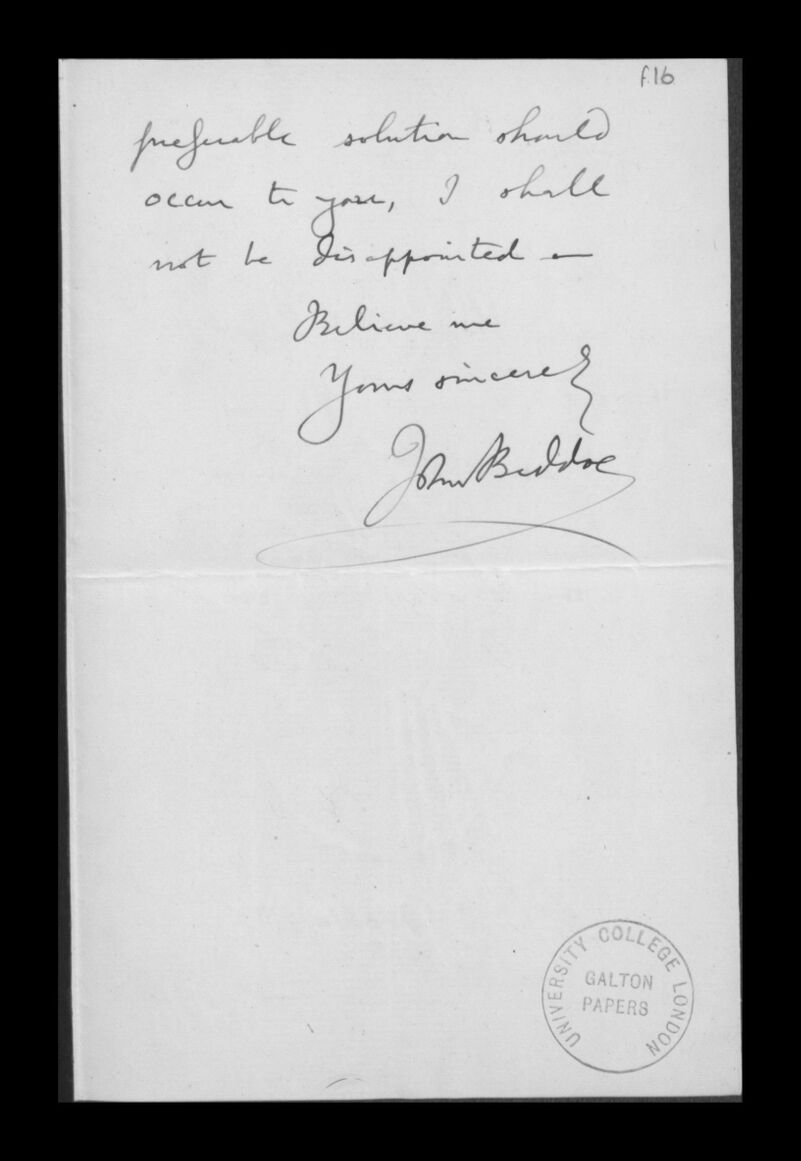 f.16
preferable solution should
occur to you, I shall
not be disappointed —
Believe me
Yours sincerely
John Beddoe
UNIVERSITY COLLEGE LONDON
GALTON
PAPERS